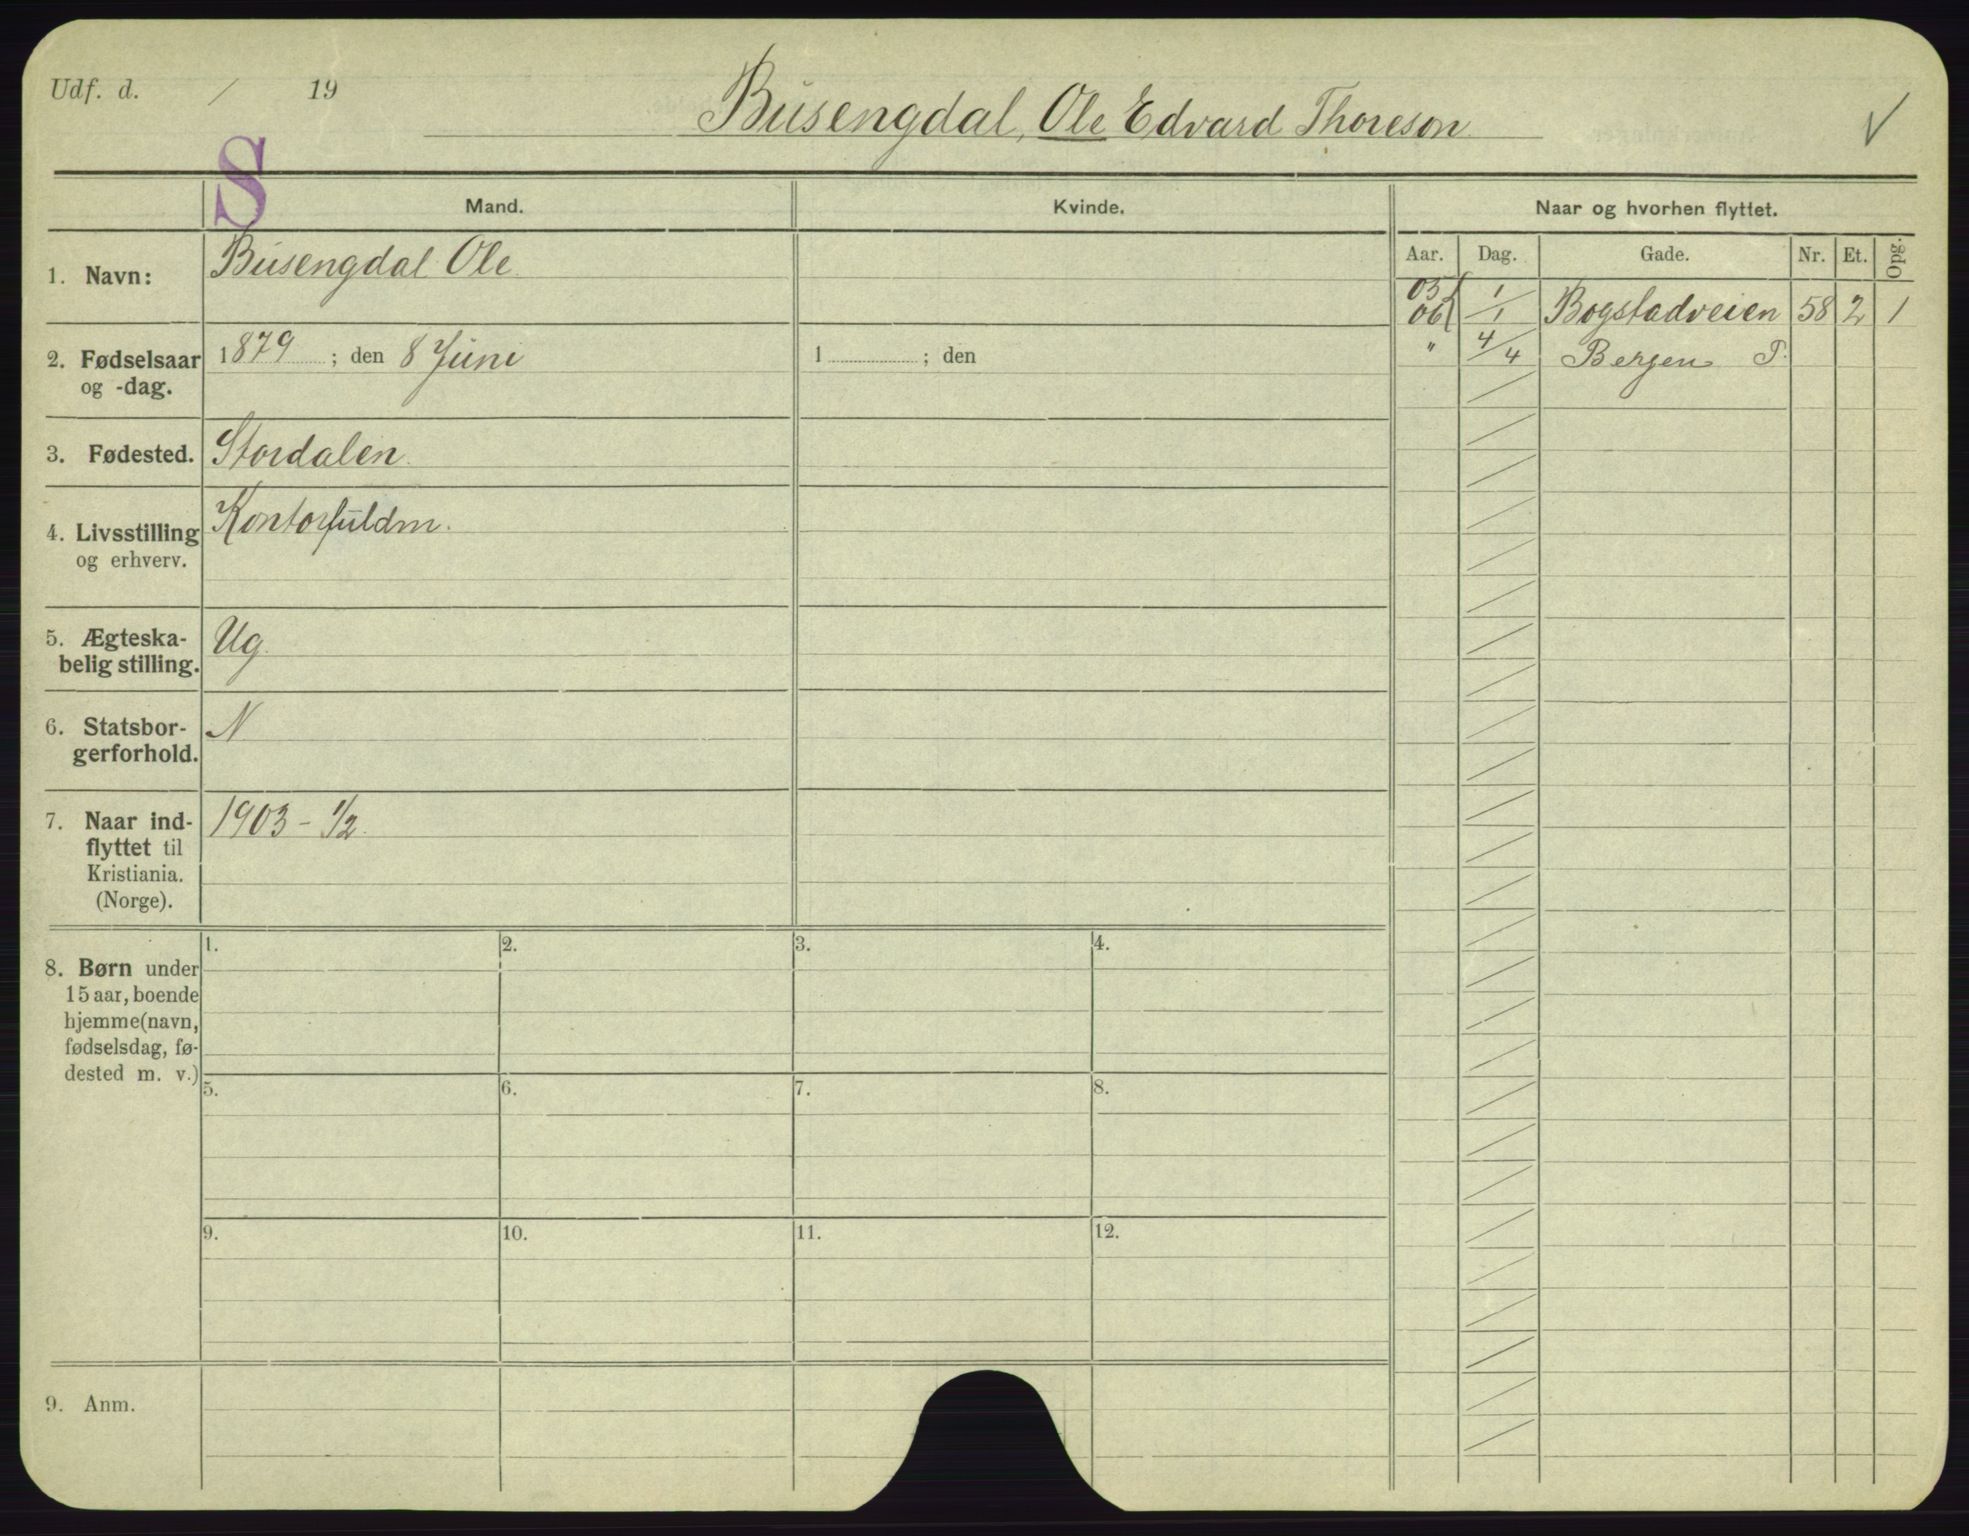 Udf. d. / 19
Busengdal, Ole Edvard Thoreson
S
Mand.
Kvinde.
Naar og hvorhen flyttet.
Aar. Dag. Gade. Nr. Et. Opg.
1. Navn:
Busengdal Ole.
05 06 1/1 Bogstadveien 58 2 1
" 4/4 Bergen P.
2. Fødselsaar
og -dag.
1879 ; den 8 Juni
1 ; den
3. Fødested.
Stordalen.
4. Livsstilling
og erhverv.
Kontorfuldm.
5. Ægteska-
belig stilling.
Ug.
6. Statsbor-
gerforhold.
N
7. Naar ind-
flyttet til
Kristiania.
(Norge).
1903 - 1/2.
8. Børn under
15 aar, boende
hjemme (navn,
fødselsdag, fø-
dested m. v.)
1. 2. 3. 4.
5. 6. 7. 8.
9. 10. 11. 12.
9. Anm.